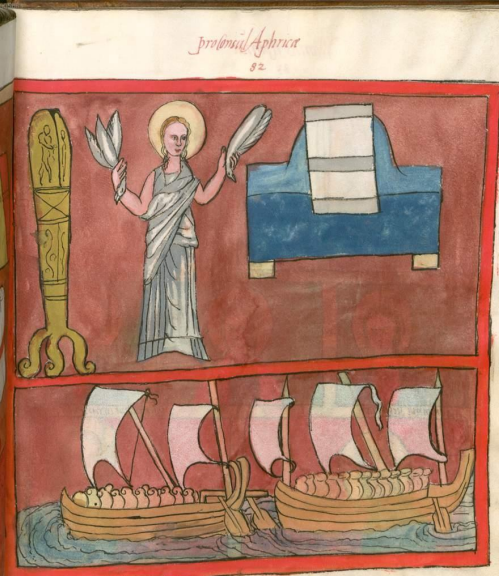 proconsul Aphricæ
82